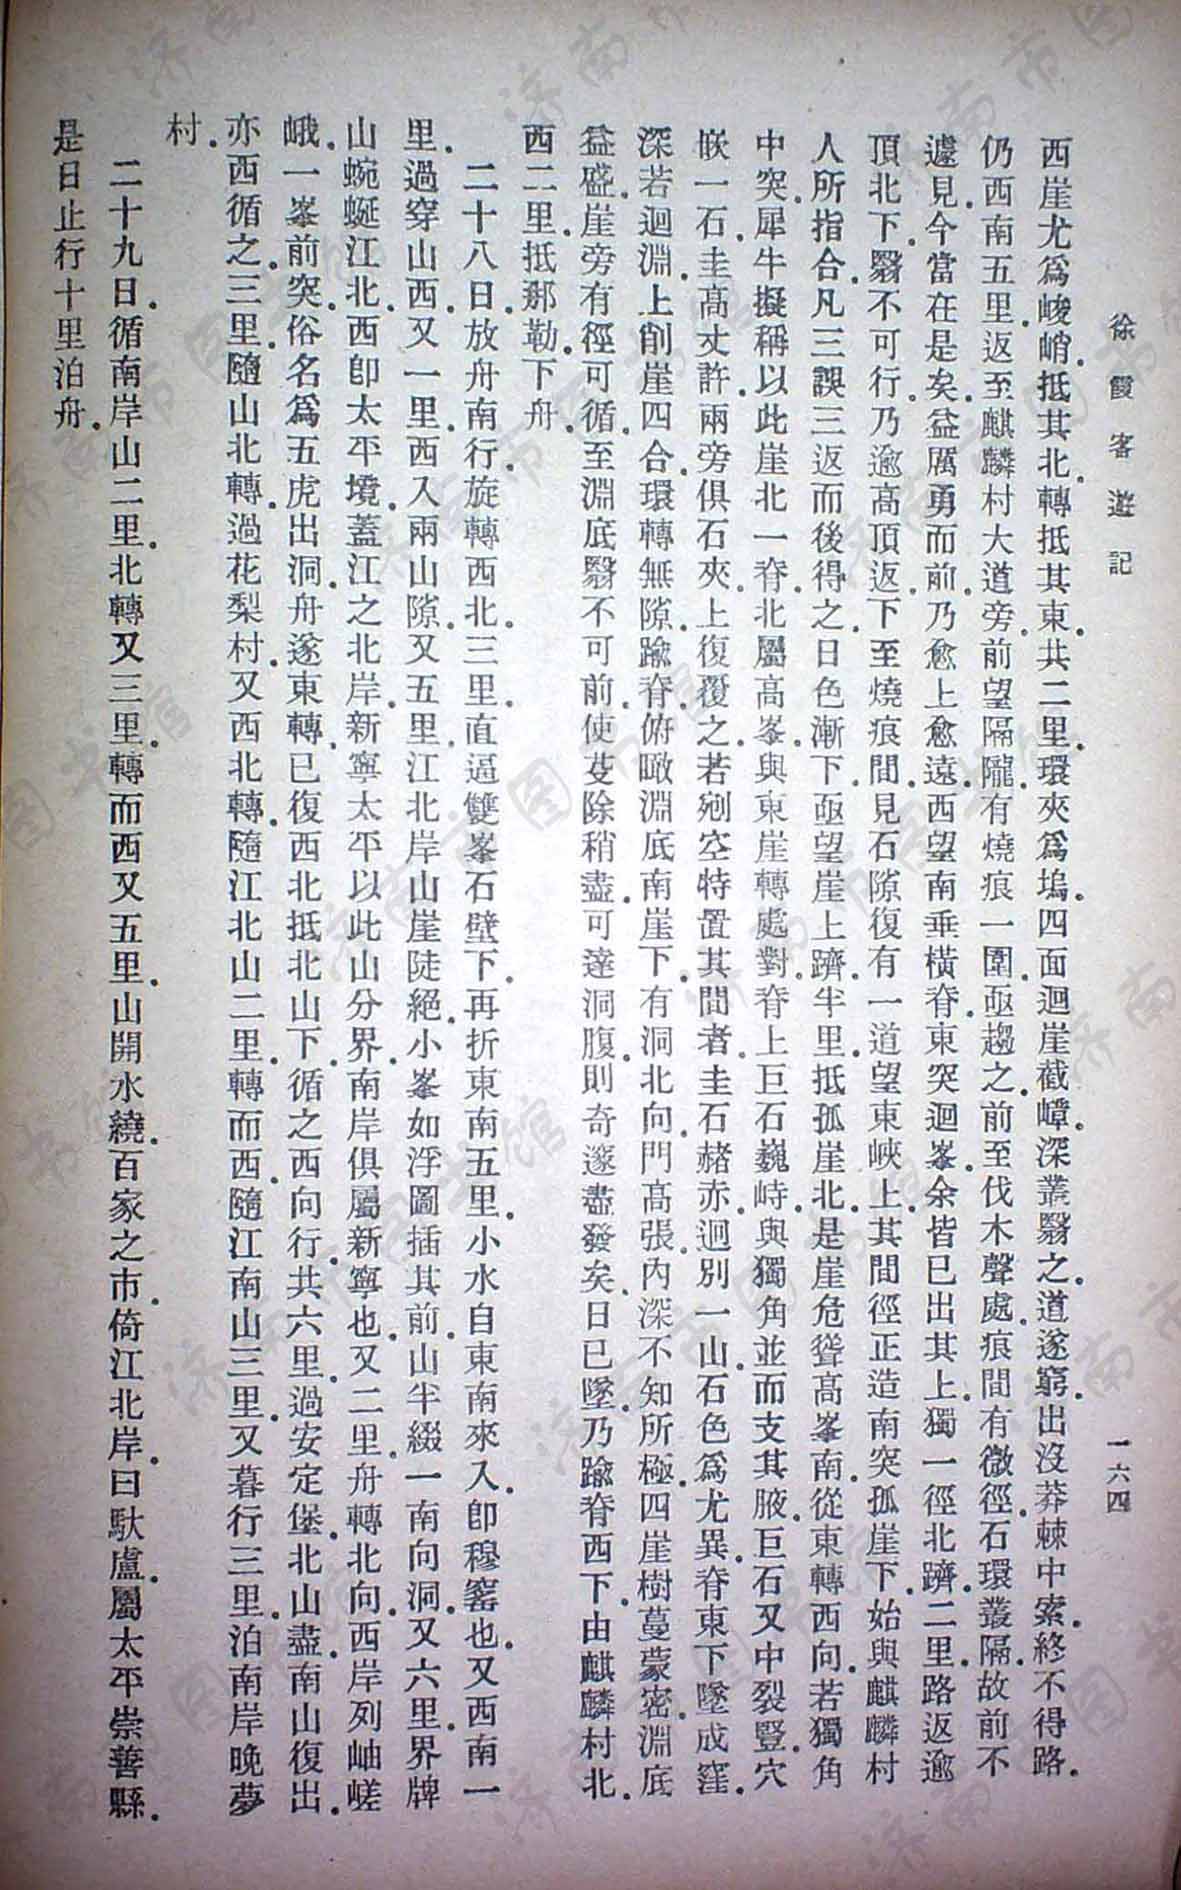 徐霞客遊記
一六四
西崖尤爲峻峭．抵其北．轉抵其東．共二里．環夾爲塢．四面迴崖截嶂．深叢翳之．道遂窮．出沒莽棘中．索終不得路．
仍西南五里．返至麒麟村大道旁．前望隔隴．有燒痕一圍．亟趨之．前至伐木聲處．痕間有微徑．石環叢隔．故前不
遽見．今當在是矣．益厲勇而前．乃愈上愈遠．西望南垂橫脊．東突迴峯．余皆已出其上．獨一徑北躋．二里．路返逾
頂北下．翳不可行．乃逾高頂．返下至燒痕間．見石隙復有一道．望東峽上．其間徑正造南突孤崖下．始與麒麟村
人所指合．凡三誤三返而後得之．日色漸下．亟望崖上躋．半里．抵孤崖北．是崖危聳高峯南．從東轉西向．若獨角
中突．犀牛擬稱以此．崖北一脊．北屬高峯．與東崖轉處對．脊上巨石巍峙．與獨角並而支其腋．巨石又中裂豎．穴
嵌一石．圭高丈許．兩旁俱石夾．上復覆之．若剜空特置其間者．圭石赭赤．迥別一山．石色爲尤異．脊東下墜成窪．
深若迴淵．上削崖四合．環轉無隙．踰脊．俯瞰淵底．南崖下．有洞北向．門高張．內深不知所極．四崖樹蔓蒙密．淵底
益盛．崖旁有徑可循．至淵底翳不可前．使芟除稍盡．可達洞腹．則奇邃盡發矣．日已墜．乃踰脊西下．由麒麟村北．
西二里．抵那勒．下舟．
二十八日．放舟南行．旋轉西北．三里．直逼雙峯石壁下．再折東南五里．小水自東南來入．卽穆窰也．又西南一
里．過穿山西．又一里．西入兩山隙．又五里．江北岸山崖陡絕．小峯如浮圖插其前．山半綴一南向洞．又六里．界牌
山蜿蜒江北．西卽太平境．蓋江之北岸．新寧太平以此山分界．南岸俱屬新寧也．又二里．舟轉北向．西岸列岫嵯
峨．一峯前突．俗名爲五虎出洞．舟遂東轉．已復西北．抵北山下．循之西向行．共六里．過安定堡．北山盡．南山復出．
亦西循之．三里．隨山北轉．過花梨村．又西北轉．隨江北山二里．轉而西．隨江南山三里．又暮行三里．泊南岸晚夢
村．
二十九日．循南岸山．二里．北轉．又三里．轉而西．又五里．山開水繞．百家之市．倚江北岸．曰馱盧．屬太平崇善縣．
是日止行十里泊舟．